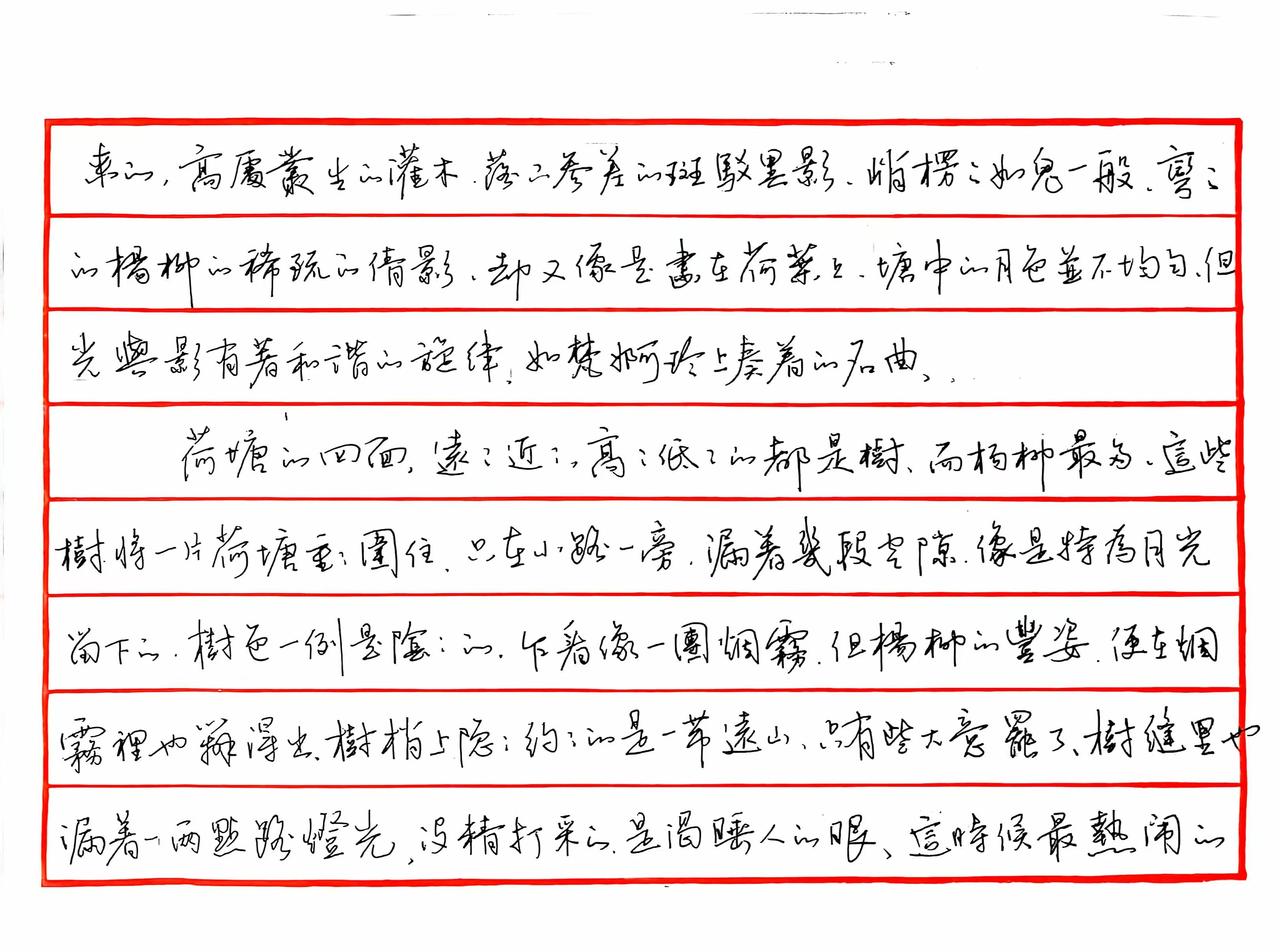 來的，高處叢生的灌木，落下參差的斑駁黑影、峭楞〻如鬼一般、彎〻
的楊柳的稀疏的倩影、却又像是畫在荷葉上、塘中的月色並不均勻、但
光與影有著和諧的旋律，如梵婀玲上奏着的名曲、
荷塘的四面，遠〻近〻，高〻低〻的都是樹、而楊柳最多、這些
樹將一片荷塘重〻圍住、只在小路一旁，漏着幾段空隙，像是特為月光
留下的，樹色一例是陰〻的，乍看像一團烟霧，但楊柳的豐姿，便在烟
霧裡也辨得出、樹梢上隐〻約〻的是一帶遠山、只有些大意罷了、樹縫里也
漏着一兩點路燈光，没精打采的，是渴睡人的眼、這時候最熱闹的